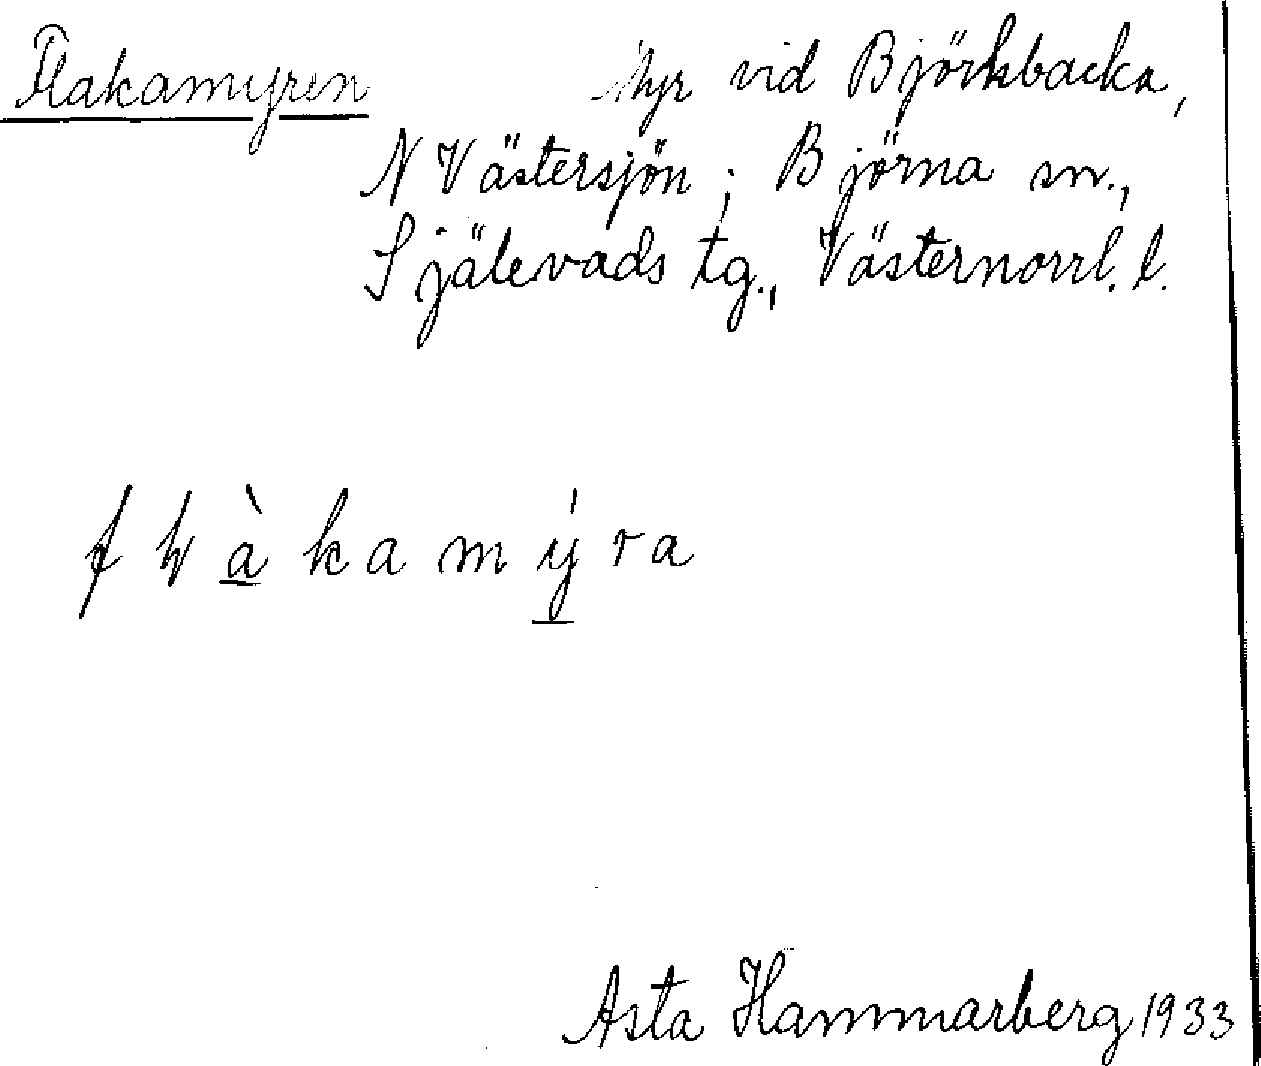 Flakamyren Myr vid Björkbacka,
N Västersjön; Björna sn.,
Själevads tg., Västernorrl. l.
kamýra
Asta Hammarberg 1933